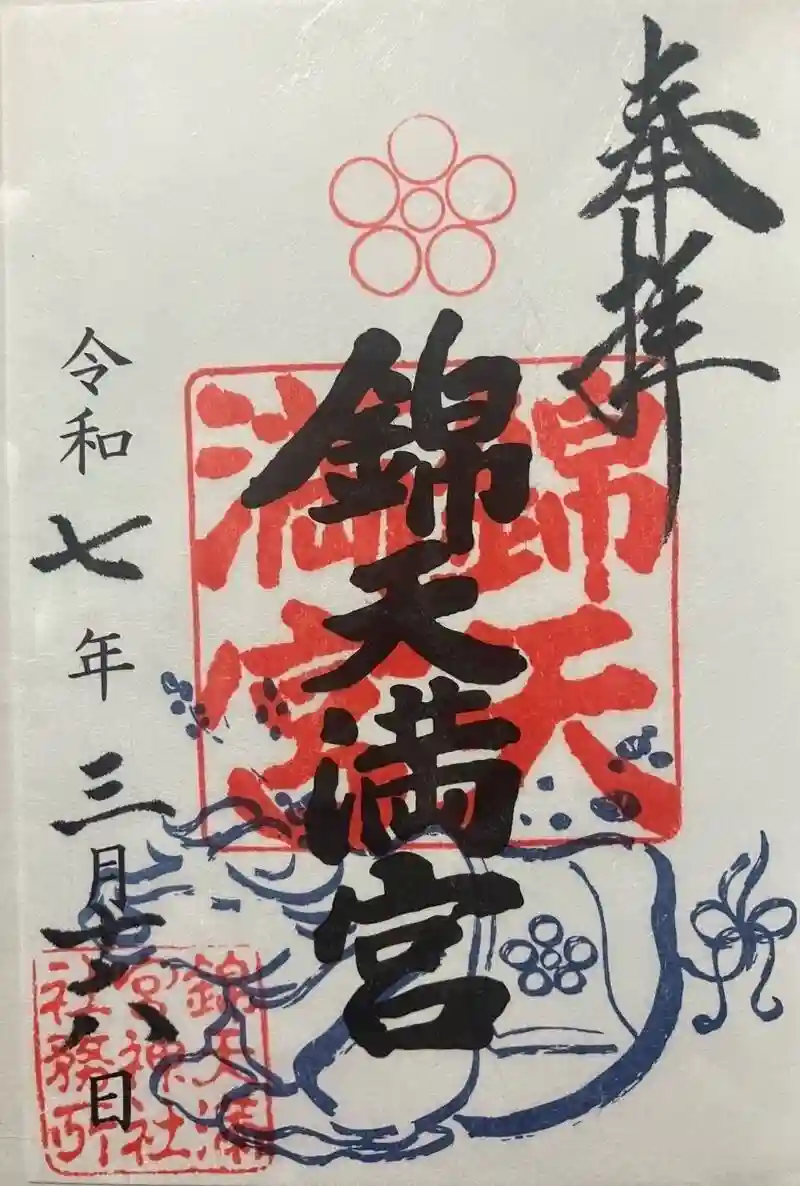 奉拝
錦天満宮
錦天
満宮
令和七年三月十八日
錦天満
宮神社
社務所